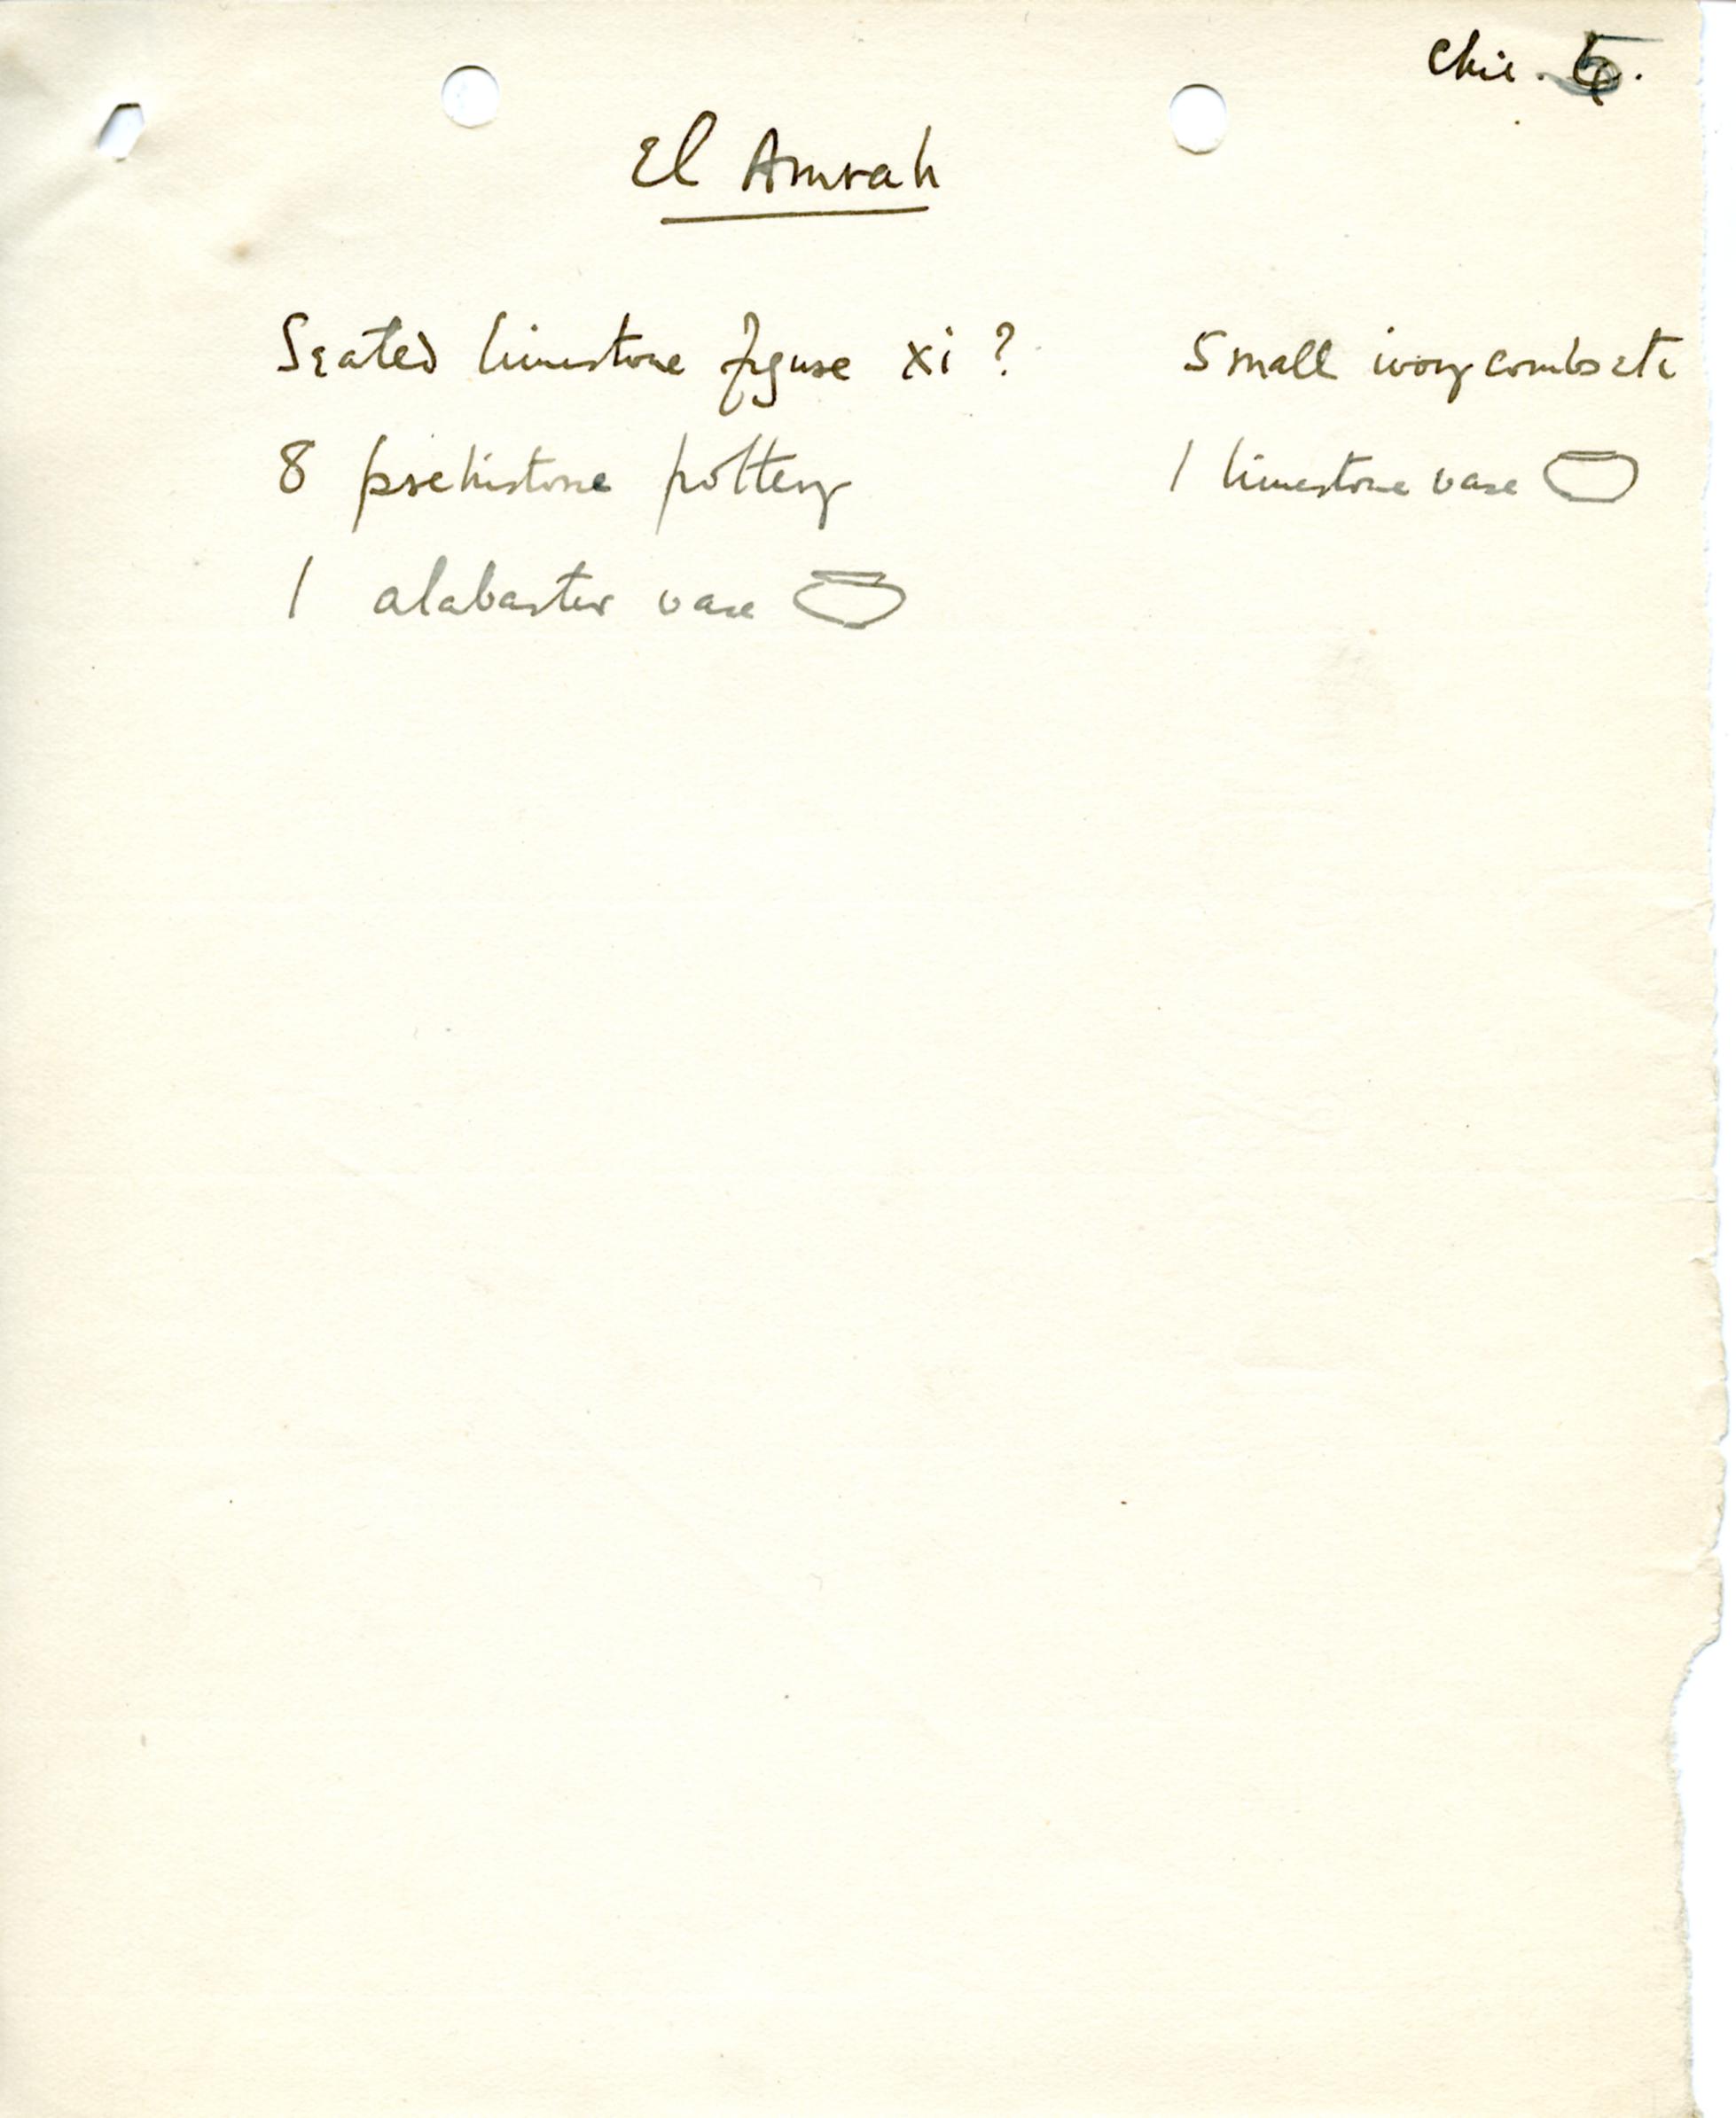 Chic.
El Amrah
Seated limestone figure xi ?
8 prehistoric pottery
1 alabaster vase
Small ivory combs etc
1 limestone vase